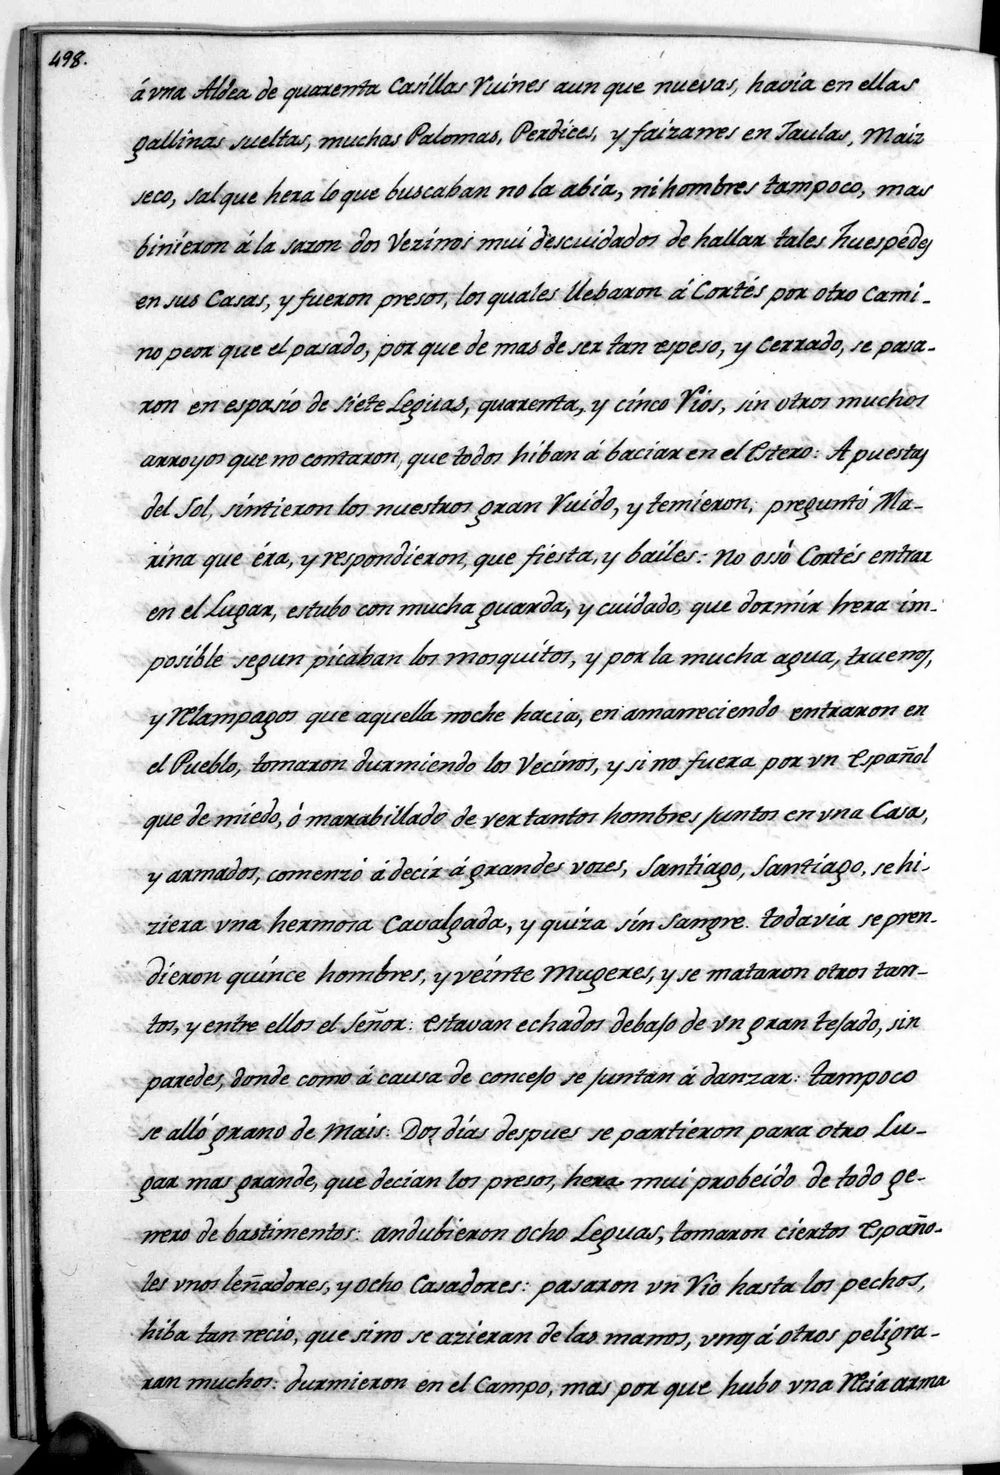 498.
á vna Aldea de quarenta Casillas Ruines aun que nuevas, havia en ellas
gallinas sueltas, muchas Palomas, Perdices, y faizanes en Jaulas, Maiz
seco, sal que hera lo que buscaban no la abia, ni hombres tampoco, mas
binieron á la sazon dos Vezinos mui descuidados de hallar tales huespedes
en sus Casas, y fueron presos, los quales llebaron á Cortés por otro Cami-
no peor que el pasado, por que de mas de ser tan espeso, y Cerrado, se pasa-
ron en espasio de siete Leguas, quarenta, y cinco Rios, sin otros muchos
arroyos que no contaron, que todos hiban á baciar en el Estero: A puestas
del Sol, sintieron los nuestros gran Ruido, y temieron; preguntó Ma-
rina que éra, y respondieron, que fiesta, y bailes: No ossó Cortés entrar
en el Lugar, estubo con mucha guarda, y cuidado, que dormir hera im-
posible segun picaban los mosquitos, y por la mucha agua, truenos,
y Relampagos que aquella noche hacia, en amaneciendo entraron en
el Pueblo, tomaron durmiendo los Vecinos, y si no fuera por vn Español
que de miedo, ó marabillado de ver tantos hombres juntos en vna Casa,
y armados, comenzó á decir á grandes vozes, Santiago, Santiago, se hi-
ziera vna hermosa Cavalgada, y quiza sin sangre. todavia se pren-
dieron quince hombres, y veinte Mugeres, y se mataron otros tan-
tos, y entre ellos el Señor: Estavan echados debajo de vn gran tejado, sin
paredes, donde como á causa de concejo se juntan á danzar: tampoco
se alló grano de Mais: Dos dias despues se partieron para otro Lu-
gar mas grande, que decian los presos, hera mui probeido de todo ge-
nero de bastimentos: andubieron ocho Leguas, tomaron ciertos Españo-
les vnos leñadores, y ocho Casadores: pasaron vn Rio hasta los pechos,
hiba tan recio, que sino se azieran de las manos, vnos á otros peligra-
ran muchos: durmieron en el Campo, mas por que hubo vna Recia arma